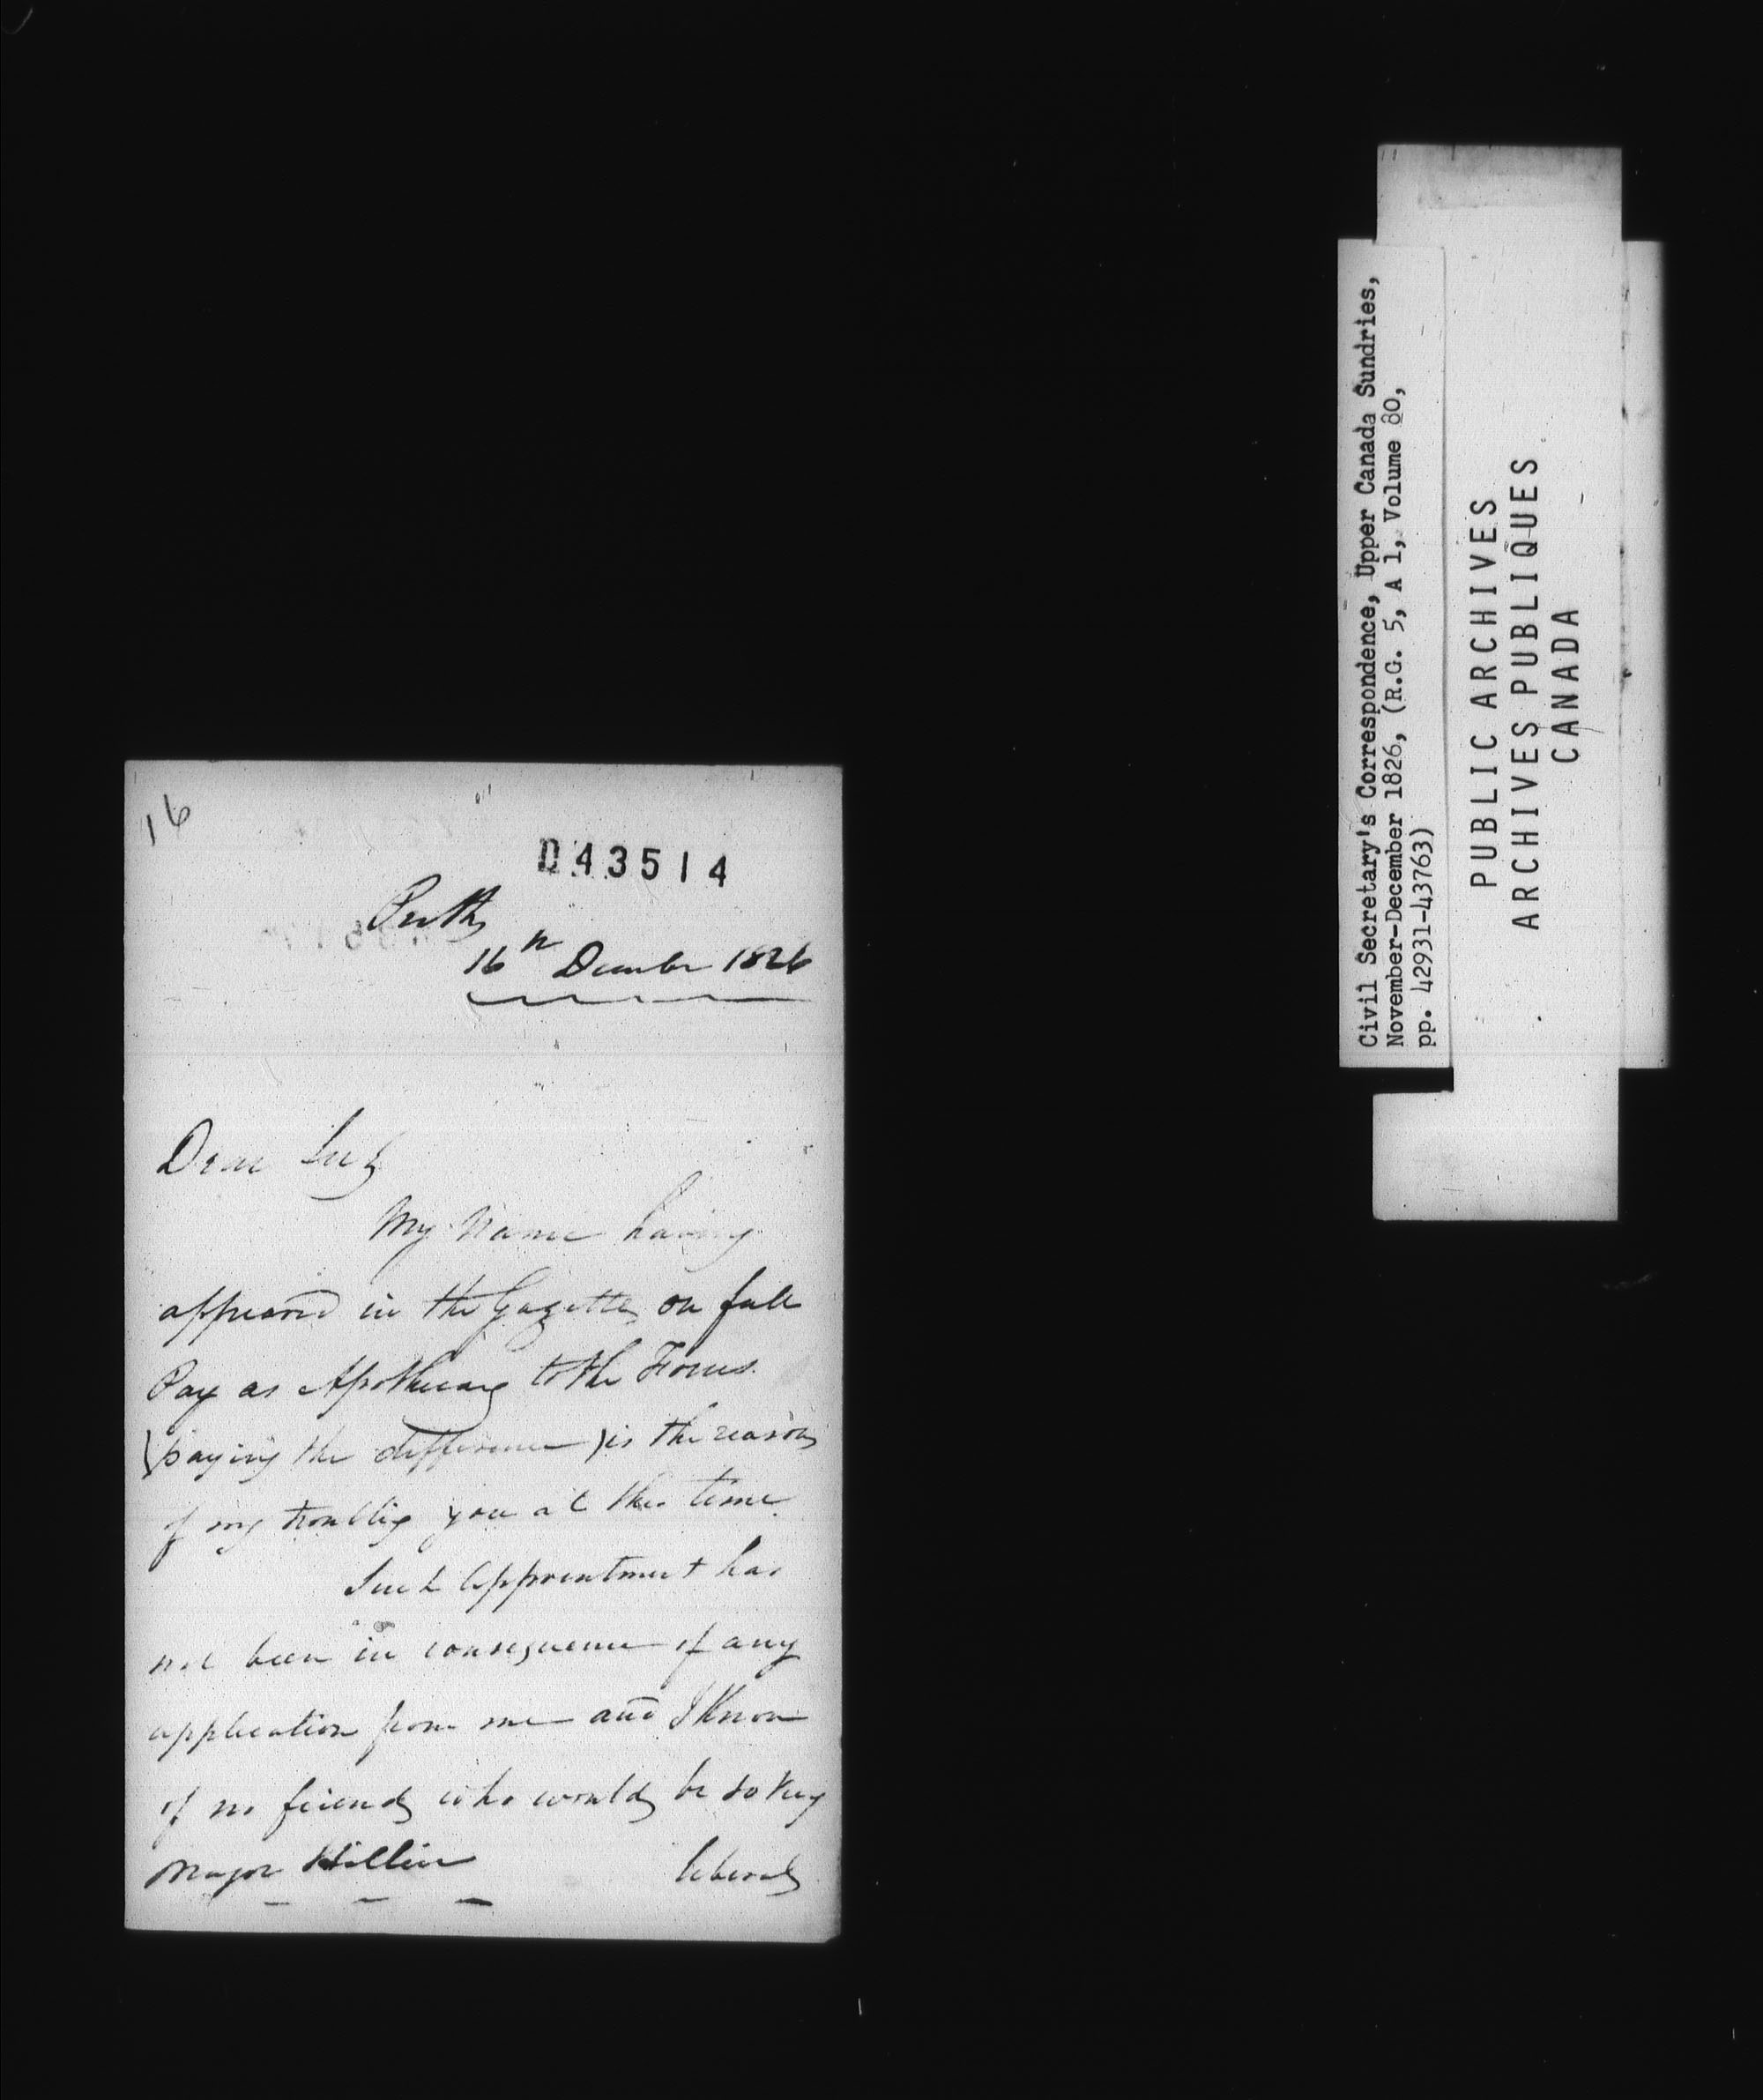 16
D43514
Perth
16th December 1826
Dear Sir
My Name having
appeared in the Gazette on full
Pay as Apothecary to the Forces
(paying the difference) is the reason
of my troubling you at this time
Such appointment has
not been in consequence of any
application from me and I Know
of no friend who would be so very
Major Hillier liberal
Civil Secretary's Correspondence, Upper Canada Sundries,
November-December 1826, (R.G. 5, A 1, Volume 80,
pp. 42931-43763)
PUBLIC ARCHIVES
ARCHIVES PUBLIQUES
CANADA